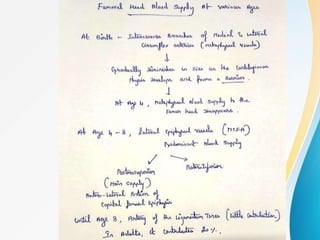 Femoral Head Blood Supply At Various Ages
At Birth - Interosseous Branches of Medial & Lateral
Circumflex arteries (Metaphyseal Vessels)
Gradually Diminishes in size as the Cartilaginous
Physis develops and forms a Barrier.
At Age 4, Metaphyseal Blood supply to the
Femoral head disappears.
At Age 4-8, Lateral Epiphyseal vessels (MCFA)
Predominant Blood Supply
Posterosuperior
Posteroinferior
(Main supply)
Antero-Lateral Portion of
Capital femoral Epiphysis
Until Age 8, Artery of the Ligamentum Teres (Little Contribution)
In Adults, it Contributes 20%.